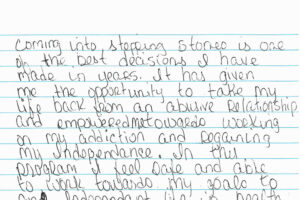 Coming into Stepping Stones is one
of the best decisions I have
made in years. It has given
me the opportunity to take my
life back from an abusive Relationship
and empowered me towards working
on my addiction and Regaining
my Independance. In this
program I feel Safe and able
to work towards my goals to
an Independant life in health